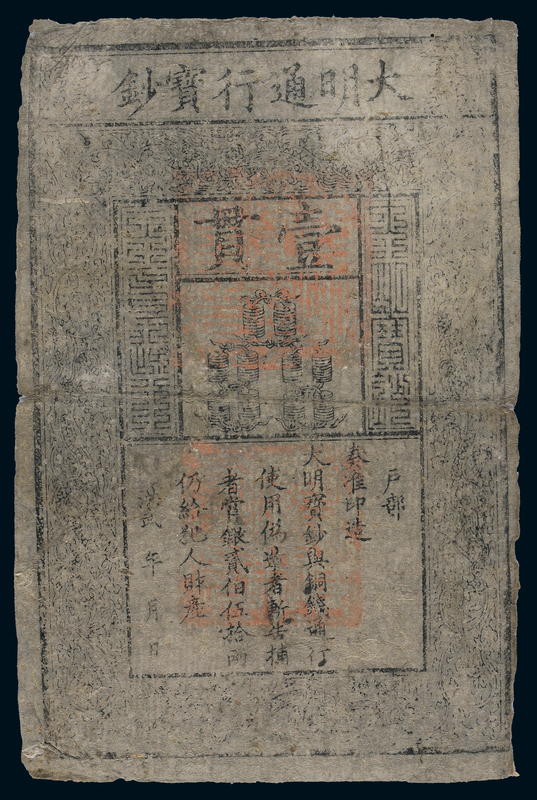 大明通行寶鈔
壹貫
户部
奏准印造
大明寶鈔與銅錢通行
使用偽造者斬告捕
者賞銀貳伯伍拾兩
仍給犯人財産
武 年 月 日